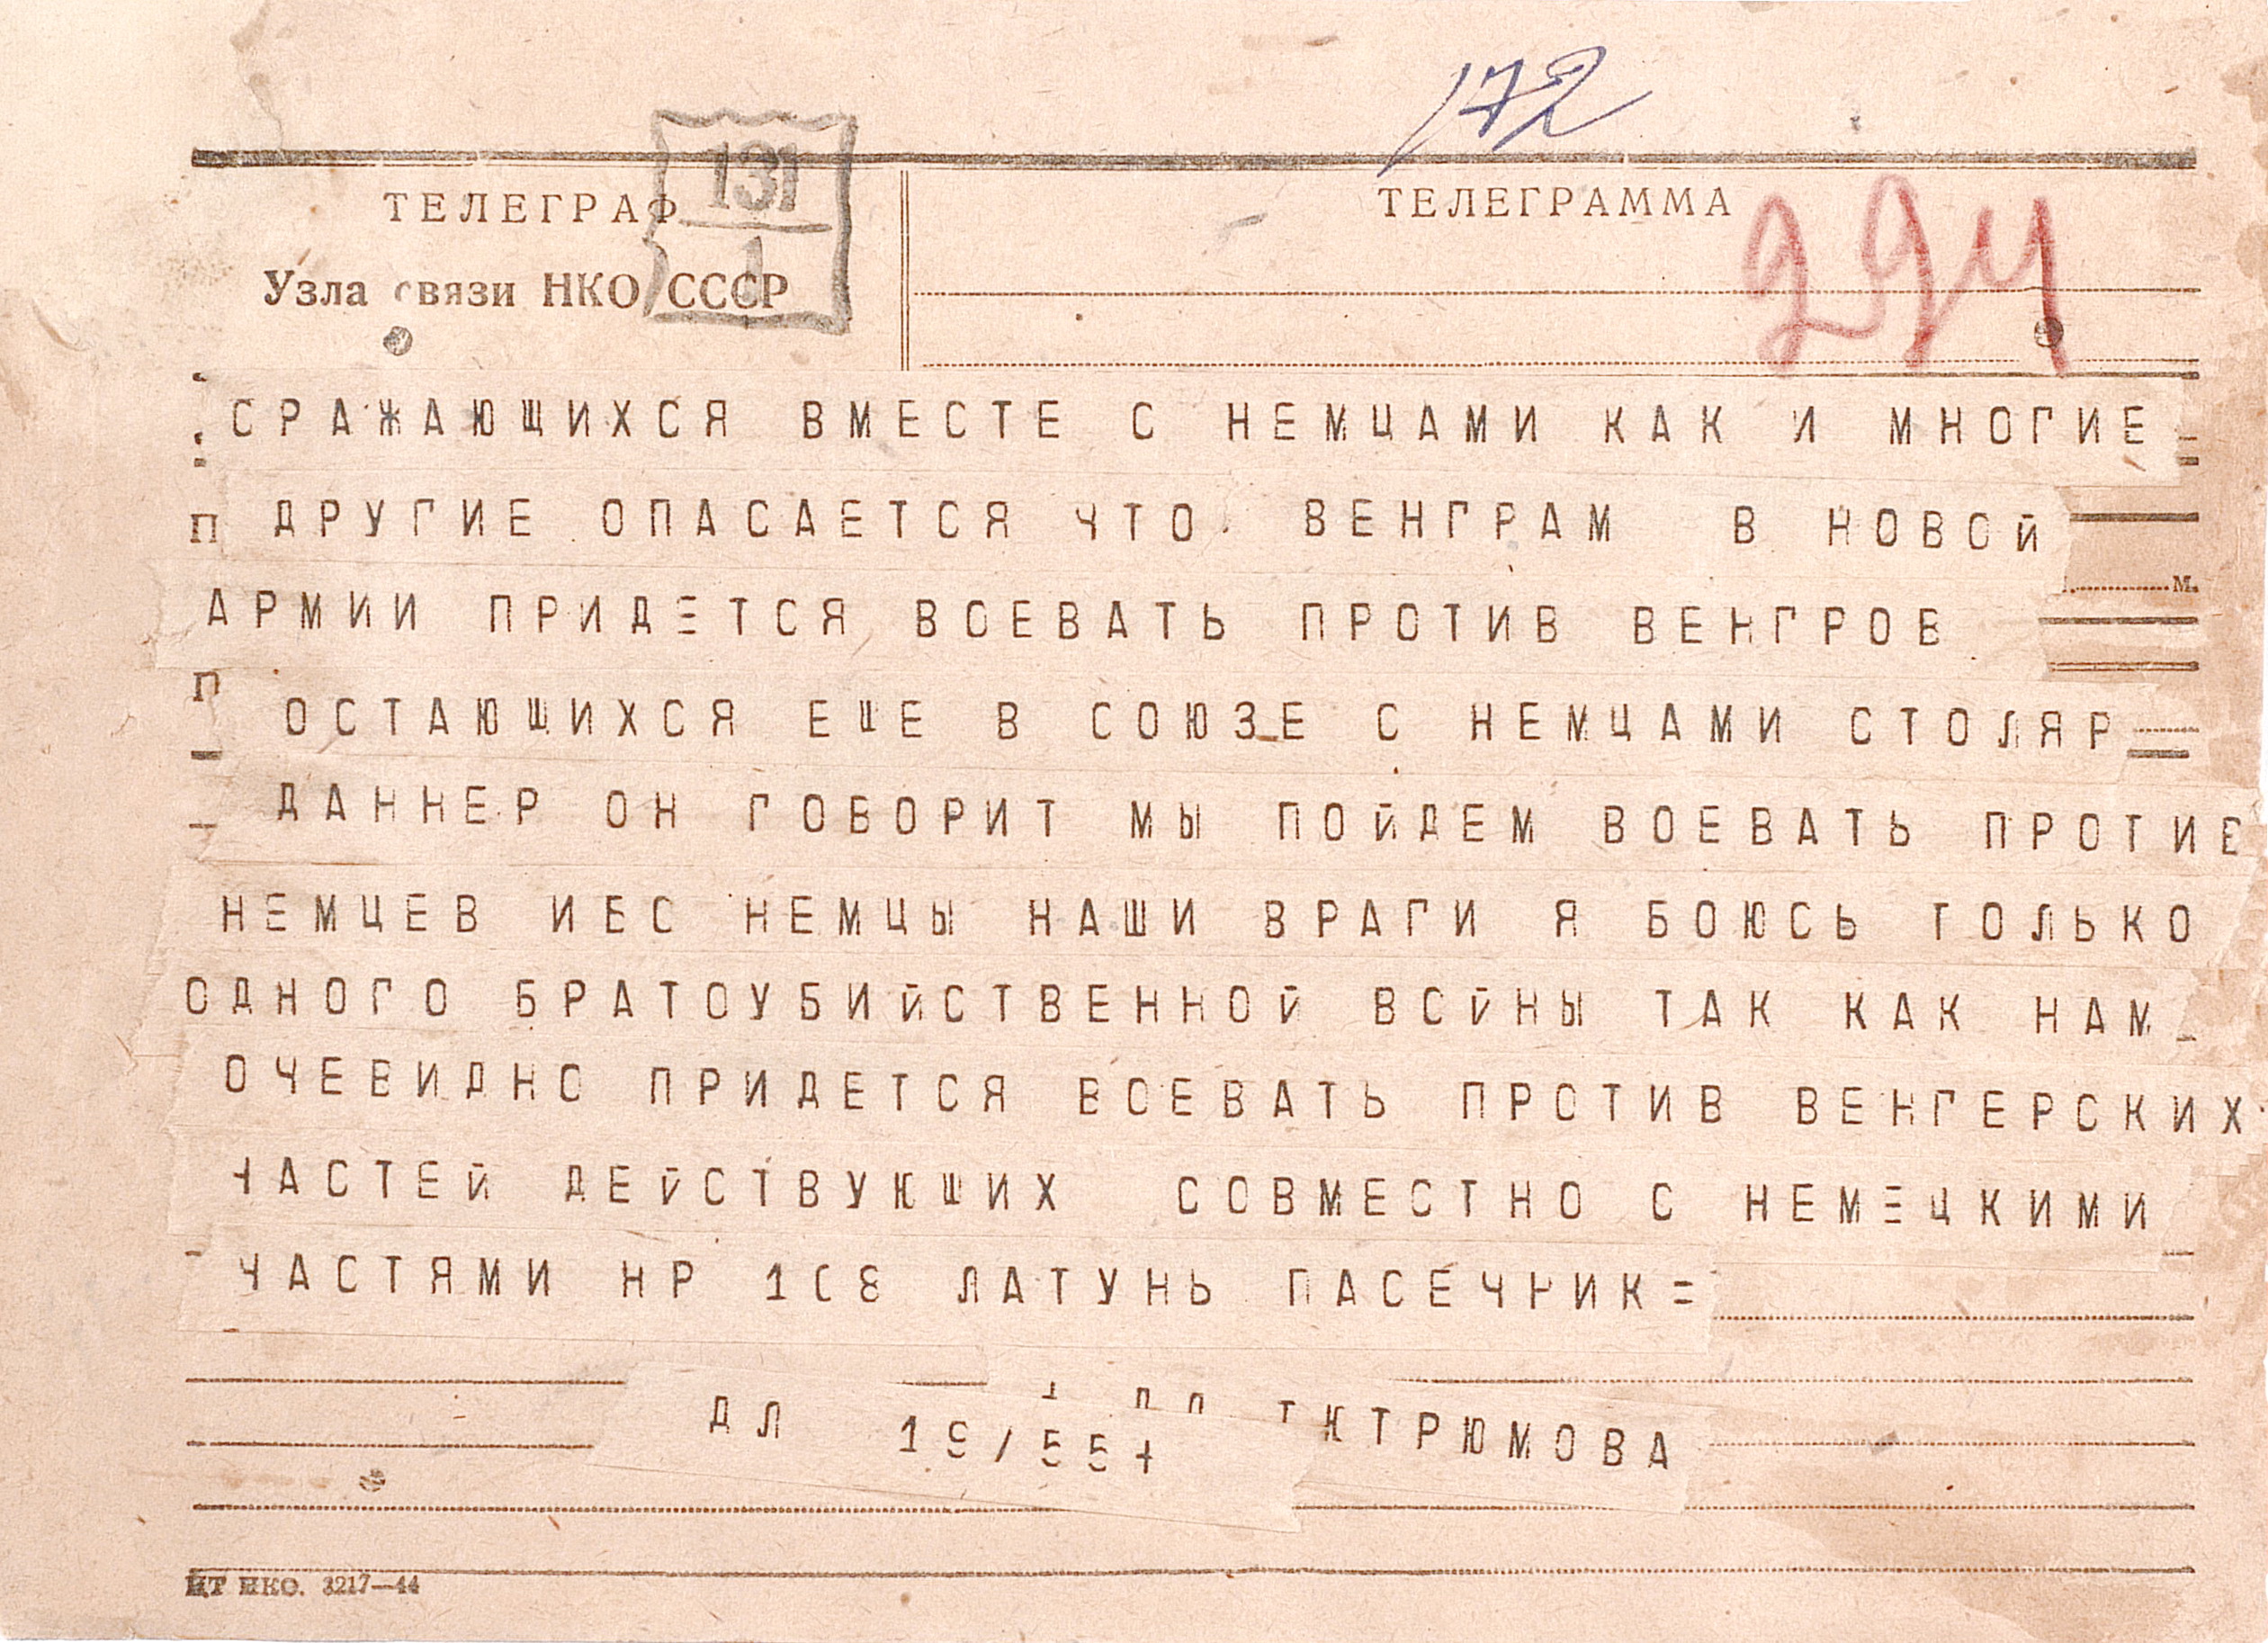 172
131
1
ТЕЛЕГРАФ
ТЕЛЕГРАММА
Узла связи НКО СССР
СРАЖАЮЩИХСЯ ВМЕСТЕ С НЕМЦАМИ КАК И МНОГИЕ
ДРУГИЕ ОПАСАЕТСЯ ЧТО ВЕНГРАМ В НОВОЙ
АРМИИ ПРИДЕТСЯ ВОЕВАТЬ ПРОТИВ ВЕНГРОВ
ОСТАЮШИХСЯ ЕШЕ В СОЮЗЕ С НЕМЦАМИ СТОЛЯР
ДАННЕР ОН ГОВОРИТ МЫ ПОЙДЕМ ВОЕВАТЬ ПРОТИВ
НЕМЦЕВ ИБС НЕМЦЫ НАШИ ВРАГИ Я БОЮСЬ ТОЛЬКО
ОДНОГО БРАТОУБИЙСТВЕННОЙ ВОЙНЫ ТАК КАК НАМ
ОЧЕВИДНО ПРИДЕТСЯ ВОЕВАТЬ ПРОТИВ ВЕНГЕРСКИХ
ЧАСТЕЙ ДЕЙСТВУЮШИХ СОВМЕСТНО С НЕМЕЦКИМИ
ЧАСТЯМИ НР 108 ЛАТУНЬ ПАСЕЧНИК=
ДЛ
ЦТ НКО. 3217—44